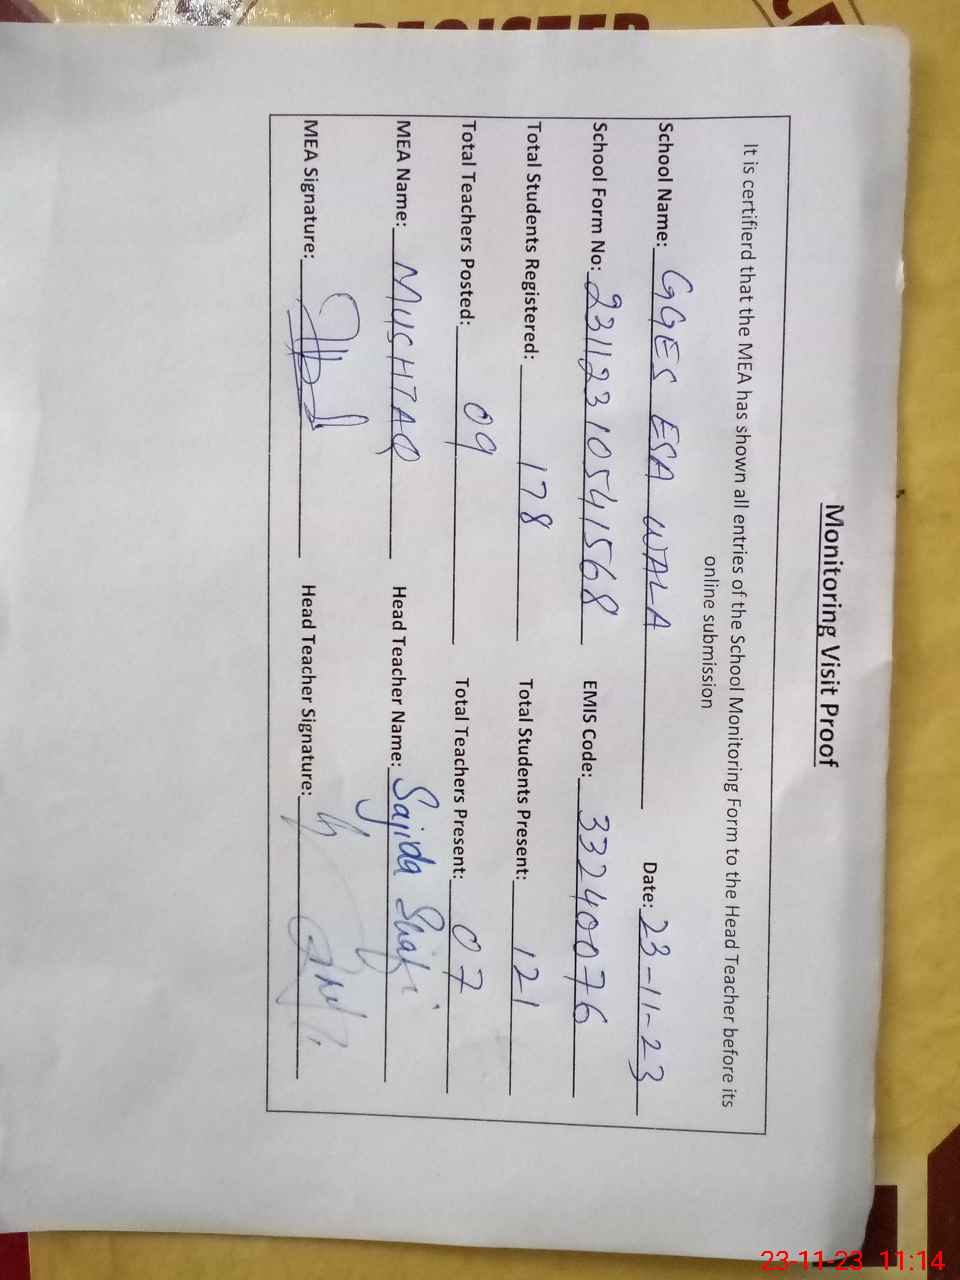 REGISTER
Monitoring Visit Proof
It is certifierd that the MEA has shown all entries of the School Monitoring Form to the Head Teacher before its
online submission
School Name: GGES ESA WALA Date: 23-11-23
School Form No: 23112310541568 EMIS Code: 33240076
Total Students Registered: 178 Total Students Present: 121
Total Teachers Posted: 09 Total Teachers Present: 07
MEA Name: MUSHTAQ Head Teacher Name: Sajida Shafi
MEA Signature: Head Teacher Signature:
23-11-23 11:14